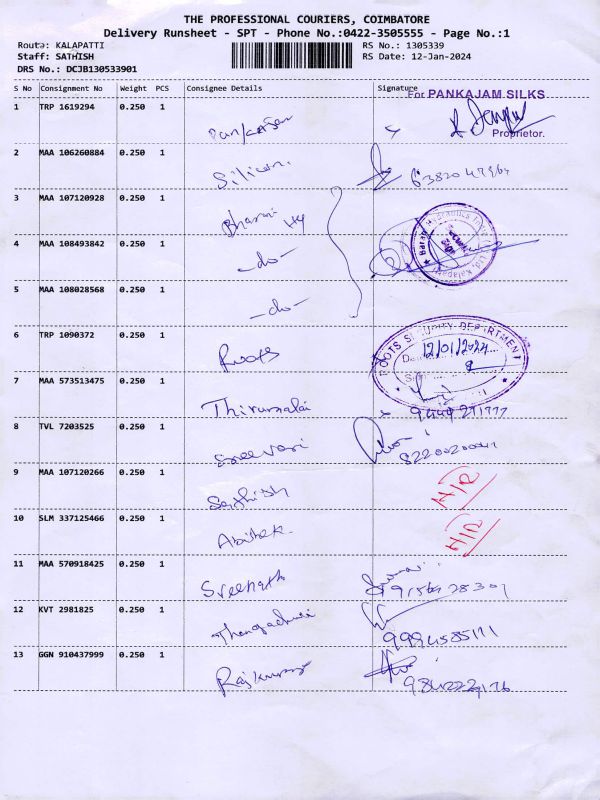 THE PROFESSIONAL COURIERS, COIMBATORE
Delivery Runsheet - SPT - Phone No.:0422-3505555 - Page No.:1
Route: KALAPATTI RS No.: 1305339
Staff: SATHISH RS Date: 12-Jan-2024
DRS No.: DCJB130533901
S No Consignment No Weight PCS Consignee Details Signature
For PANKAJAM SILKS
1 TRP 1619294 0.250 1
Proprietor.
2 MAA 106260884 0.250 1 Silicon.
3 MAA 107120928 0.250 1 Bharani Hy
4 MAA 108493842 0.250 1 -do-
5 MAA 108028568 0.250 1 -do-
6 TRP 1090372 0.250 1 Roots ROOTS SECURITY DEPARTMENT
12/01/2024
7 MAA 573513475 0.250 1 Thirumalai
8 TVL 7203525 0.250 1 Sreevari
9 MAA 107120266 0.250 1 Sathish
10 SLM 337125466 0.250 1 Abishek
11 MAA 570918425 0.250 1 Sreenath
12 KVT 2981825 0.250 1 9994585111
13 GGN 910437999 0.250 1 Rajkumar